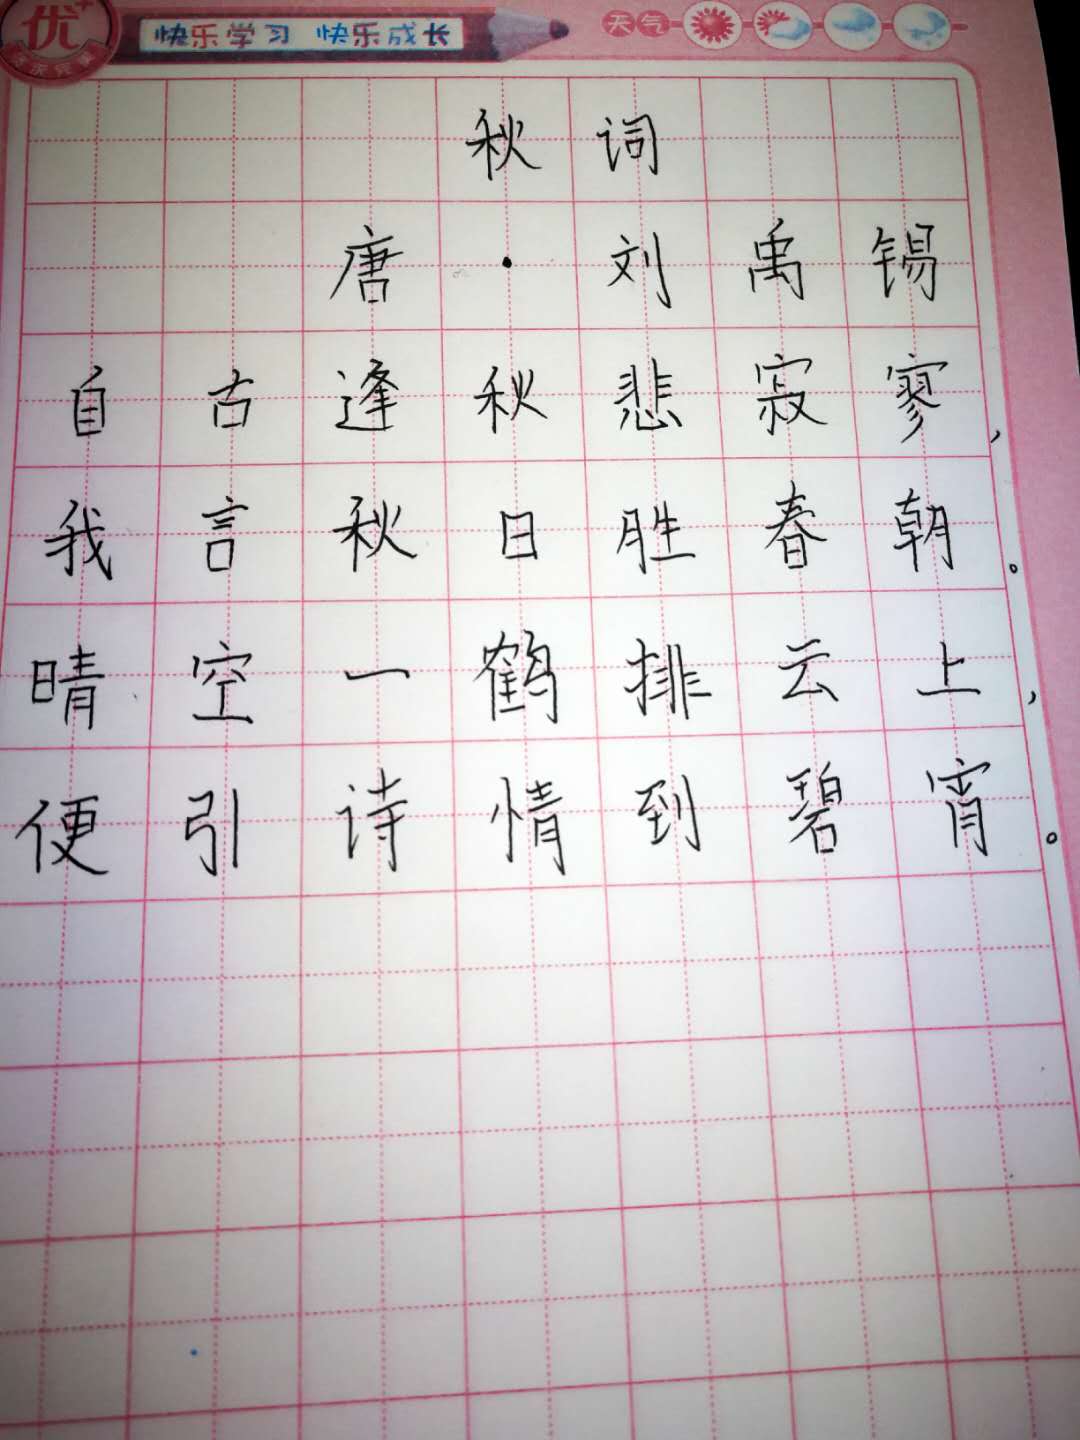 优+ 快乐学习 快乐成长 天气
秋词
唐·刘禹锡
自古逢秋悲寂寥,
我言秋日胜春朝。
晴空一鹤排云上,
便引诗情到碧宵。